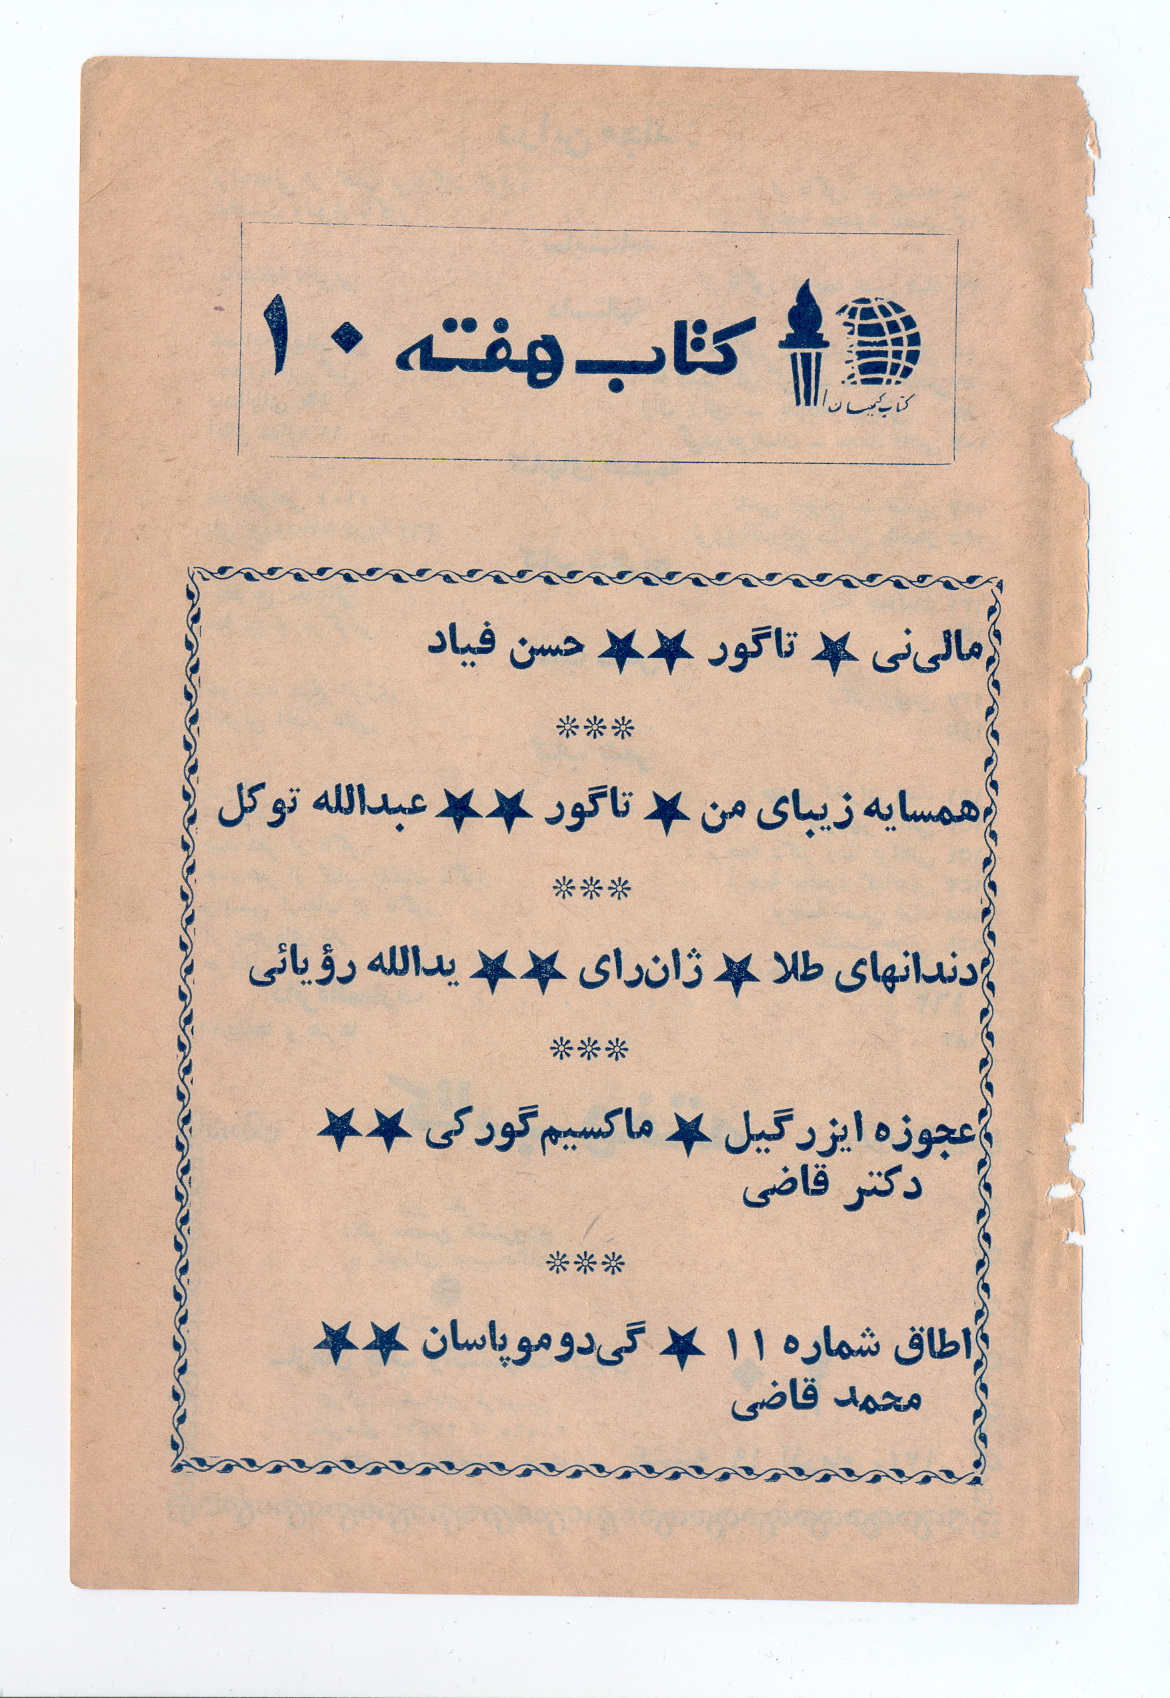 کتاب هفته ۱۰
کتاب کیهان
مالی‌نی ★ تاگور ★★ حسن فیاد
***
همسایه زیبای من ★ تاگور ★★ عبدالله توکل
***
دندانهای طلا ★ ژان‌رای ★★ یدالله رؤیائی
***
عجوزه ایزرگیل ★ ماکسیم گورکی ★★
دکتر قاضی
***
اطاق شماره ۱۱ ★ گی‌دوموپاسان ★★
محمد قاضی